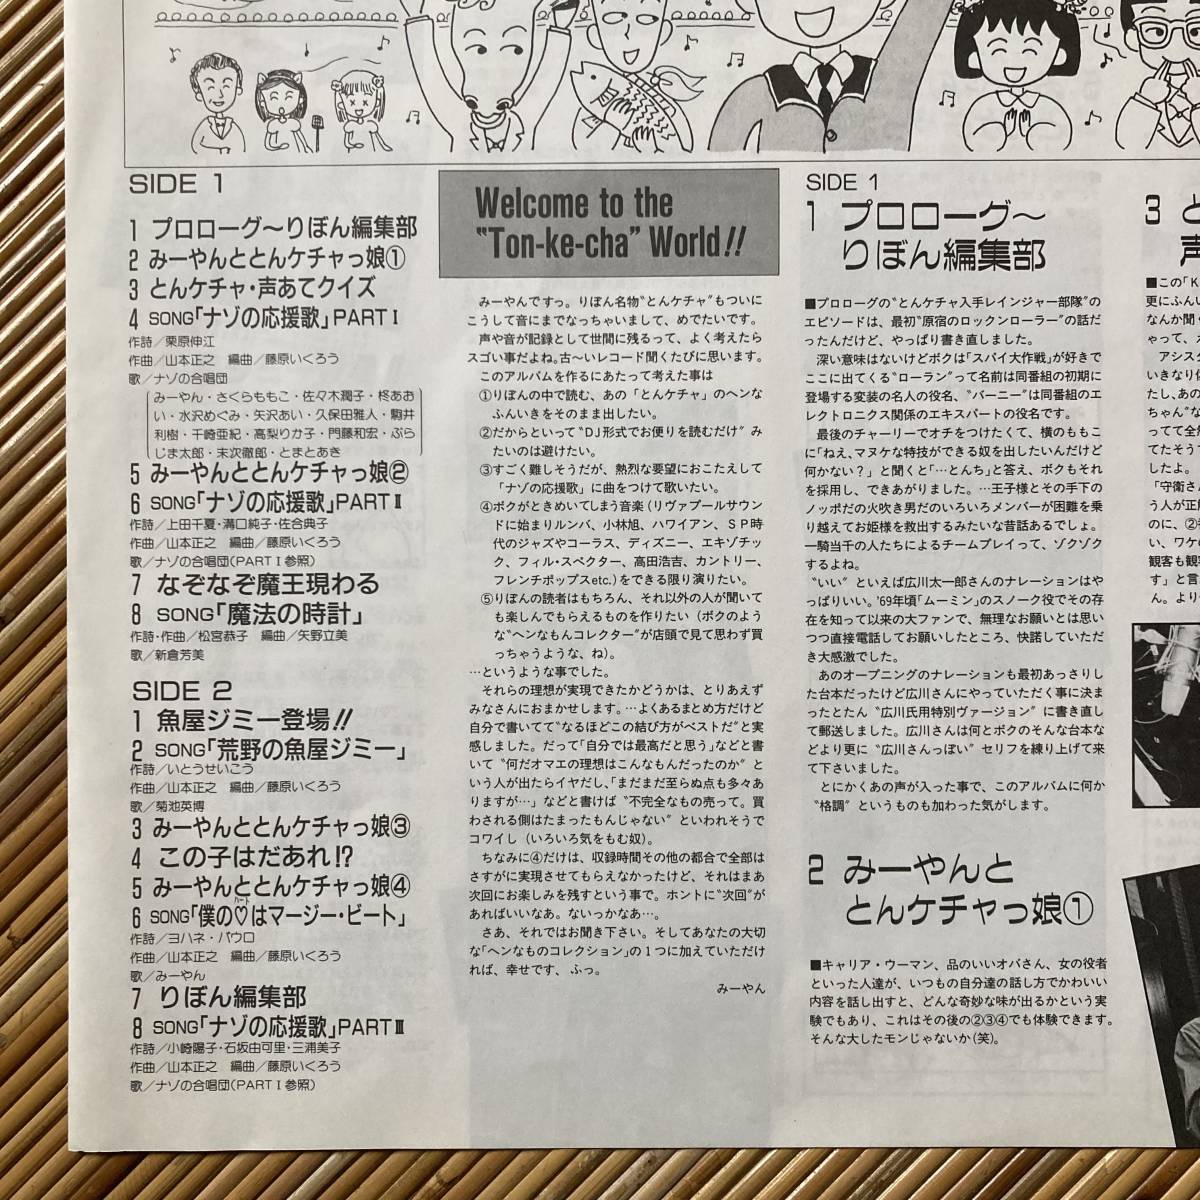 SIDE 1
1 プロローグ～りぼん編集部
2 みーやんととんケチャっ娘①
3 とんケチャ・声あてクイズ
4 SONG「ナゾの応援歌」PART Ⅰ
作詩／栗原伸江
作曲／山本正之 編曲／藤原いくろう
歌／ナゾの合唱団
みーやん・さくらももこ・佐々木潤子・柊あお
い・水沢めぐみ・矢沢あい・久保田雅人・駒井
利樹・千崎亜紀・高梨りか子・門藤和宏・ぶら
じま太郎・末沢徹郎・とまとあき
5 みーやんととんケチャっ娘②
6 SONG「ナゾの応援歌」PART Ⅱ
作詩／上田千夏・溝口純子・佐合典子
作曲／山本正之 編曲／藤原いくろう
歌／ナゾの合唱団(PART Ⅰ 参照)
7 なぞなぞ魔王現わる
8 SONG「魔法の時計」
作詩・作曲／松宮恭子 編曲／矢野立美
歌／新倉芳美
SIDE 2
1 魚屋ジミー登場!!
2 SONG「荒野の魚屋ジミー」
作詩／いとうせいこう
作曲／山本正之 編曲／藤原いくろう
歌／菊池英博
3 みーやんととんケチャっ娘③
4 この子はだあれ!?
5 みーやんととんケチャっ娘④
6 SONG「僕の♡はマージー・ビート」
ハート
作詩／ヨハネ・パウロ
作曲／山本正之 編曲／藤原いくろう
歌／みーやん
7 りぼん編集部
8 SONG「ナゾの応援歌」PART Ⅲ
作詩／小崎陽子・石坂由可里・三浦美子
作曲／山本正之 編曲／藤原いくろう
歌／ナゾの合唱団(PART Ⅰ 参照)
Welcome to the
"Ton-ke-cha" World!!
みーやんですっ。りぼん名物"とんケチャ"もついに
こうして音にまでなっちゃいまして、めでたいです。
声や音が記録として世間に残るって、よく考えたら
スゴい事だよね。古〜いレコード聞くたびに思います。
このアルバムを作るにあたって考えた事は
①りぼんの中で読む、あの「とんケチャ」のヘンな
ふんいきをそのまま出したい。
②だからといって"DJ形式でお便りを読むだけ"み
たいのは避けたい。
③すごく難しそうだが、熱烈な要望におこたえして
「ナゾの応援歌」に曲をつけて歌いたい。
④ボクがときめいてしまう音楽(リヴァプールサウン
ドに始まりルンバ、小林旭、ハワイアン、SP時
代のジャズやコーラス、ディズニー、エキゾチッ
ク、フィル・スペクター、高田浩吉、カントリー、
フレンチポップスetc.)をできる限り演りたい。
⑤りぼんの読者はもちろん、それ以外の人が聞いて
も楽しんでもらえるものを作りたい(ボクのよう
な"ヘンなもんコレクター"が店頭で見て思わず買
っちゃうような、ね)。
…というような事でした。
それらの理想が実現できたかどうかは、とりあえず
みなさんにおまかせします。…よくあるまとめ方だけど
自分で書いてて"なるほどこの結び方がベストだ"と実
感しました。だって「自分では最高だと思う」などと書
いて"何だオマエの理想はこんなもんだったのか"と
いう人が出たらイヤだし、「まだまだ至らぬ点も多々あ
りますが…」などと書けば"不完全なもの売って。買
わされる側はたまったもんじゃない"といわれそうで
コワイし(いろいろ気をもむ奴)。
ちなみに④だけは、収録時間その他の都合で全部は
さすがに実現させてもらえなかったけど、それはまあ
次回にお楽しみを残すという事で。ホントに"次回"が
あればいいなあ。ないっかなあ…。
さあ、それではお聞き下さい。そしてあなたの大切
な「ヘンなものコレクション」の1つに加えていただけ
れば、幸せです、ふっ。
みーやん
SIDE 1
1 プロローグ～
りぼん編集部
■プロローグの"とんケチャ入手レインジャー部隊"の
エピソードは、最初"原宿のロックンローラー"の話だ
ったんだけど、やっぱり書き直しました。
深い意味はないけどボクは「スパイ大作戦」が好きで
ここに出てくる"ローラン"って名前は同番組の初期に
登場する変装の名人の役名、"バーニー"は同番組のエ
レクトロニクス関係のエキスパートの役名です。
最後のチャーリーでオチをつけたくて、横のももこ
に「ねえ、マヌケな特技ができる奴を出したいんだけど
何かない？」と聞くと「…とんち」と答え、ボクもそれ
を採用し、できあがりました。…王子様とその手下の
ノッポだの火吹き男だのいろいろメンバーが困難を乗
り越えてお姫様を救出するみたいな昔話あるでしょ。
一騎当千の人たちによるチームプレイって、ゾクゾク
するよね。
"いい"といえば広川太一郎さんのナレーションはや
っぱりいい。'69年頃「ムーミン」のスノーク役でその存
在を知って以来の大ファンで、無理なお願いとは思い
つつ直接電話してお願いしたところ、快諾していただ
き大感激でした。
あのオープニングのナレーションも最初あっさりし
た台本だったけど広川さんにやっていただく事に決ま
ったとたん"広川氏用特別ヴァージョン"に書き直し
て郵送しました。広川さんは何とボクのそんな台本な
どより更に"広川さんっぽい"セリフを練り上げて来
て下さいました。
とにかくあの声が入った事で、このアルバムに何か
"格調"というものも加わった気がします。
2 みーやんと
とんケチャっ娘①
■キャリア・ウーマン、品のいいオバさん、女の役者
といった人達が、いつもの自分達の話し方でかわいい
内容を話し出すと、どんな奇妙な味が出るかという実
験でもあり、これはその後の②③④でも体験できます。
そんな大したモンじゃないか(笑)。
3 と
声
■この「K
更にふんい
なんか聞く
ゃって、
アシス
いきなり
たし、あの
ちゃん"な
ってて全
てたそう
したよ。
「守衛さん
う人が正
のに、②
い、ワケ
観客も観
す」と言
ん。より